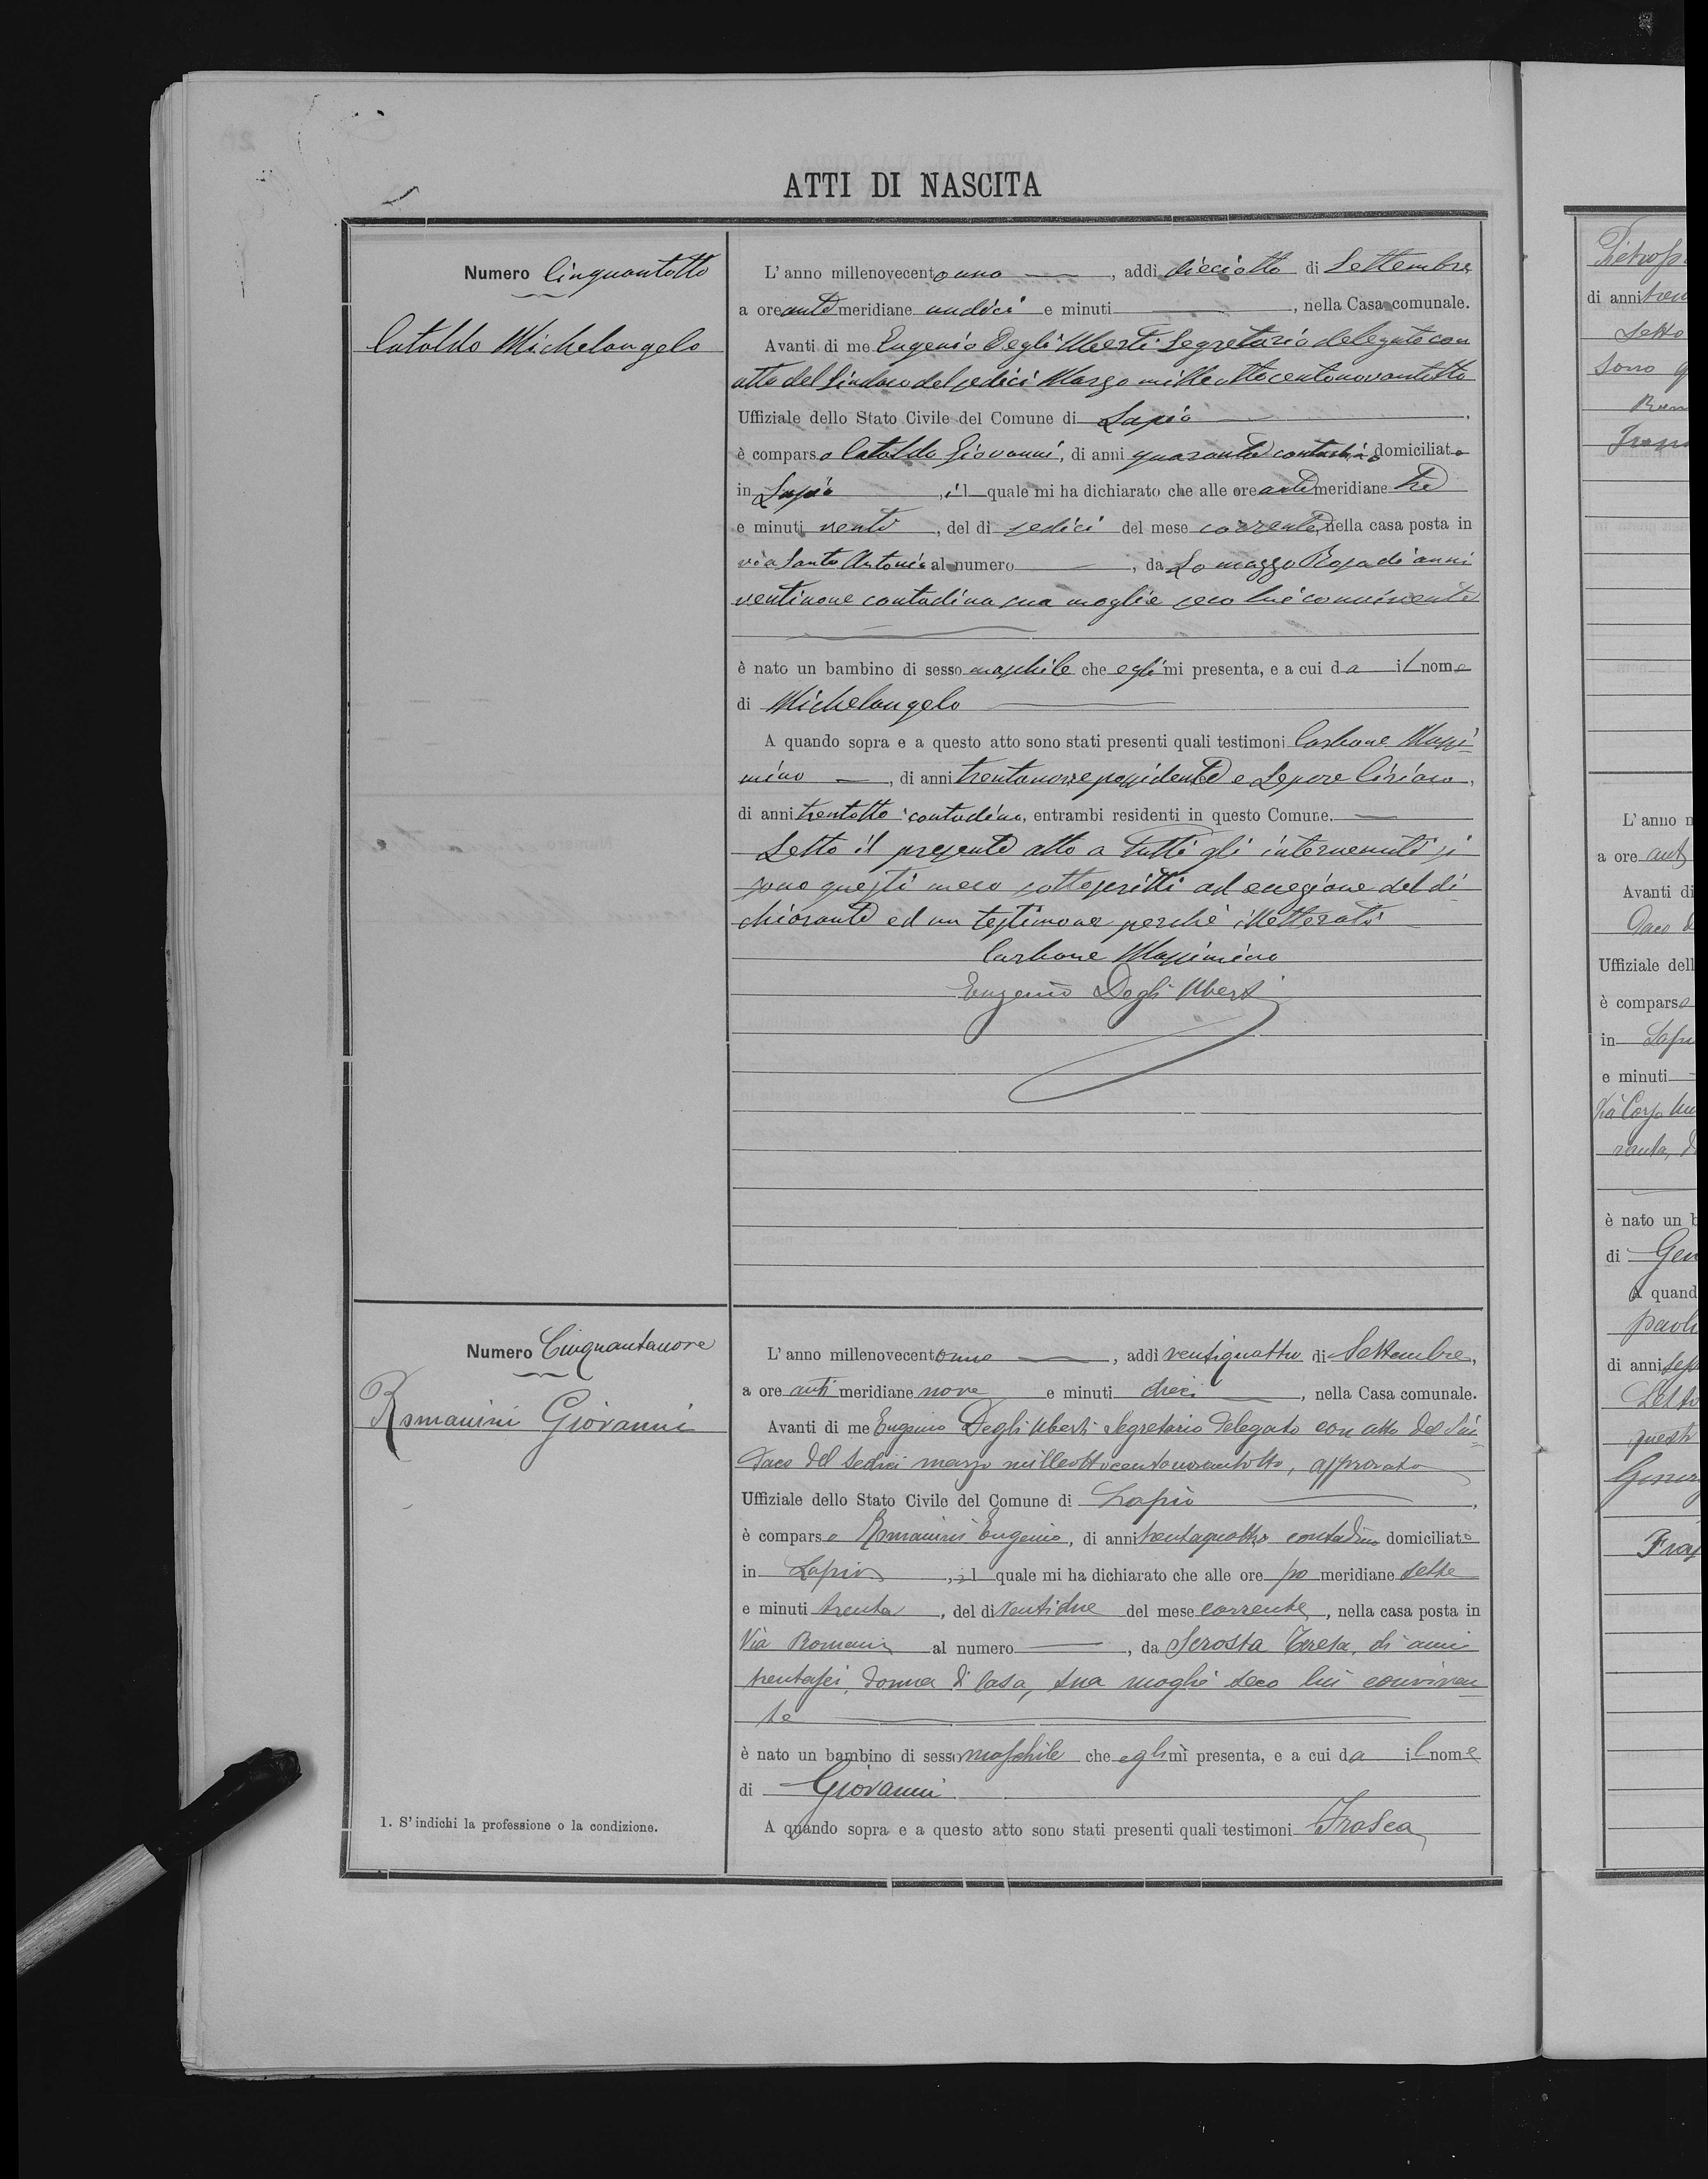 ATTI DI NASCITA
Numero Cinquantotto
Cataldo Michelangelo
L'anno millenovecentouno, addì dieciotto di Settembre
a ore anti meridiane undici e minuti, nella Casa comunale.
Avanti di me Eugenio Degli Uberti Segretario delegato con
atto del Sindaco del sedici Marzo milleottocentonovantotto
Uffiziale dello Stato Civile del Comune di Lapio.
è comparso Cataldo Giovanni, di anni quaranta contadino domiciliato
in Lapio, il quale mi ha dichiarato che alle ore anti meridiane tre
e minuti venti, del dì sedici del mese corrente, nella casa posta in
via Santo Antonio al numero, da Lomazzo Rosa di anni
ventinove contadina sua moglie seco lui convivente
è nato un bambino di sesso maschile che egli mi presenta, e a cui da il nome
di Michelangelo
A quando sopra e a questo atto sono stati presenti quali testimoni Carbone Massi-
mino, di anni trentanove possidente e Lepore Ciriaco,
di anni trentotto contadino, entrambi residenti in questo Comune.
Letto il presente atto a tutti gli intervenuti si
sono questi meco sottoscritti ad eccezione del di-
chiarante ed un testimone perché illetterati
Carbone Massimino
Eugenio Degli Uberti
Numero Cinquantanove
Romanini Giovanni
L'anno millenovecentouno, addì ventiquattro di Settembre,
a ore anti meridiane nove e minuti dieci, nella Casa comunale.
Avanti di me Eugenio Degli Uberti Segretario Delegato con atto del Sin-
daco del sedici marzo milleottocentonovantotto, approvato
Uffiziale dello Stato Civile del Comune di Lapio,
è comparso Romanini Eugenio, di anni trentaquattro contadino domiciliato
in Lapio, il quale mi ha dichiarato che alle ore po meridiane sette
e minuti trenta, del dì ventidue del mese corrente, nella casa posta in
Via Romani al numero, da Scrosta Teresa, di anni
trentasei, donna di casa, sua moglie seco lui conviven-
te
è nato un bambino di sesso maschile che egli mi presenta, e a cui da il nome
di Giovanni
A quando sopra e a questo atto sono stati presenti quali testimoni Frasca
1. S'indichi la professione o la condizione.
di anni
Letto
sono
L'anno
a ore anti
Avanti di
Uffiziale dell
è comparso
in
e minuti
Via Corso
è nato un
di
A quand
di anni
Letto
questi